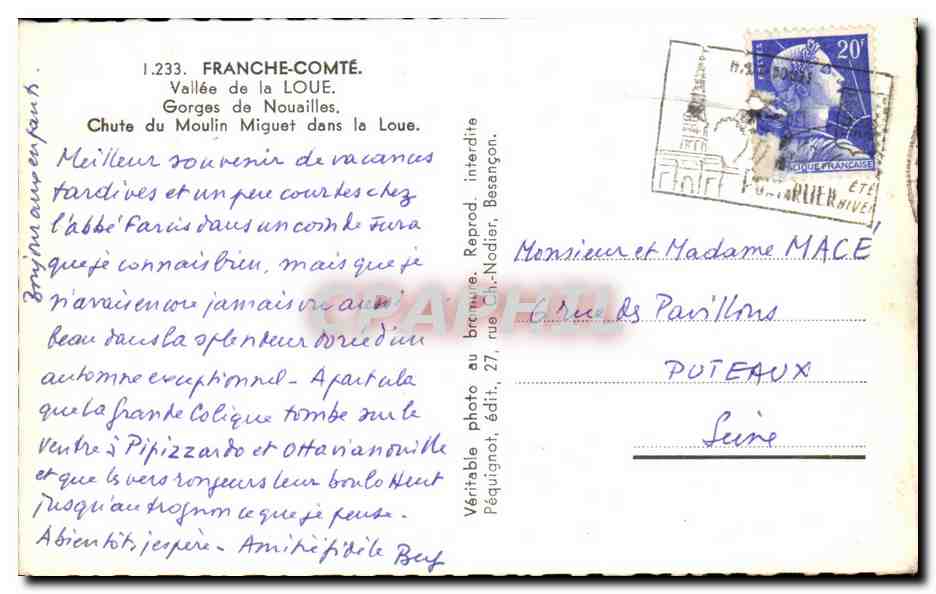 1.233. FRANCHE-COMTÉ.
Vallée de la LOUE.
Gorges de Nouailles.
Chute du Moulin Miguet dans la Loue.
Bonjour aux enfants.
Meilleur souvenir de vacances
tardives et un peu courtes chez
l'abbé Farcis dans un coin de Jura
que je connais bien, mais que je
n'avais encore jamais vu aussi
beau dans la splendeur dorée d'un
automne exceptionnel - A part cela
que la Grande Colique tombe sur le
ventre à Pipizzardo et Ottavianouille
et que les vers rongeurs leur boulottent
jusqu'au trognon ce que je pense -
A bientôt, j'espère - Amitié fidèle
Véritable photo au bromure. Reprod. interdite
Péquignot, édit., 27, rue Ch.-Nodier, Besançon.
20F
FRANÇAISE
ÉTÉ
HIVER
Monsieur et Madame MACE
6 rue des Pavillons
PUTEAUX
Seine
CPAPHIL